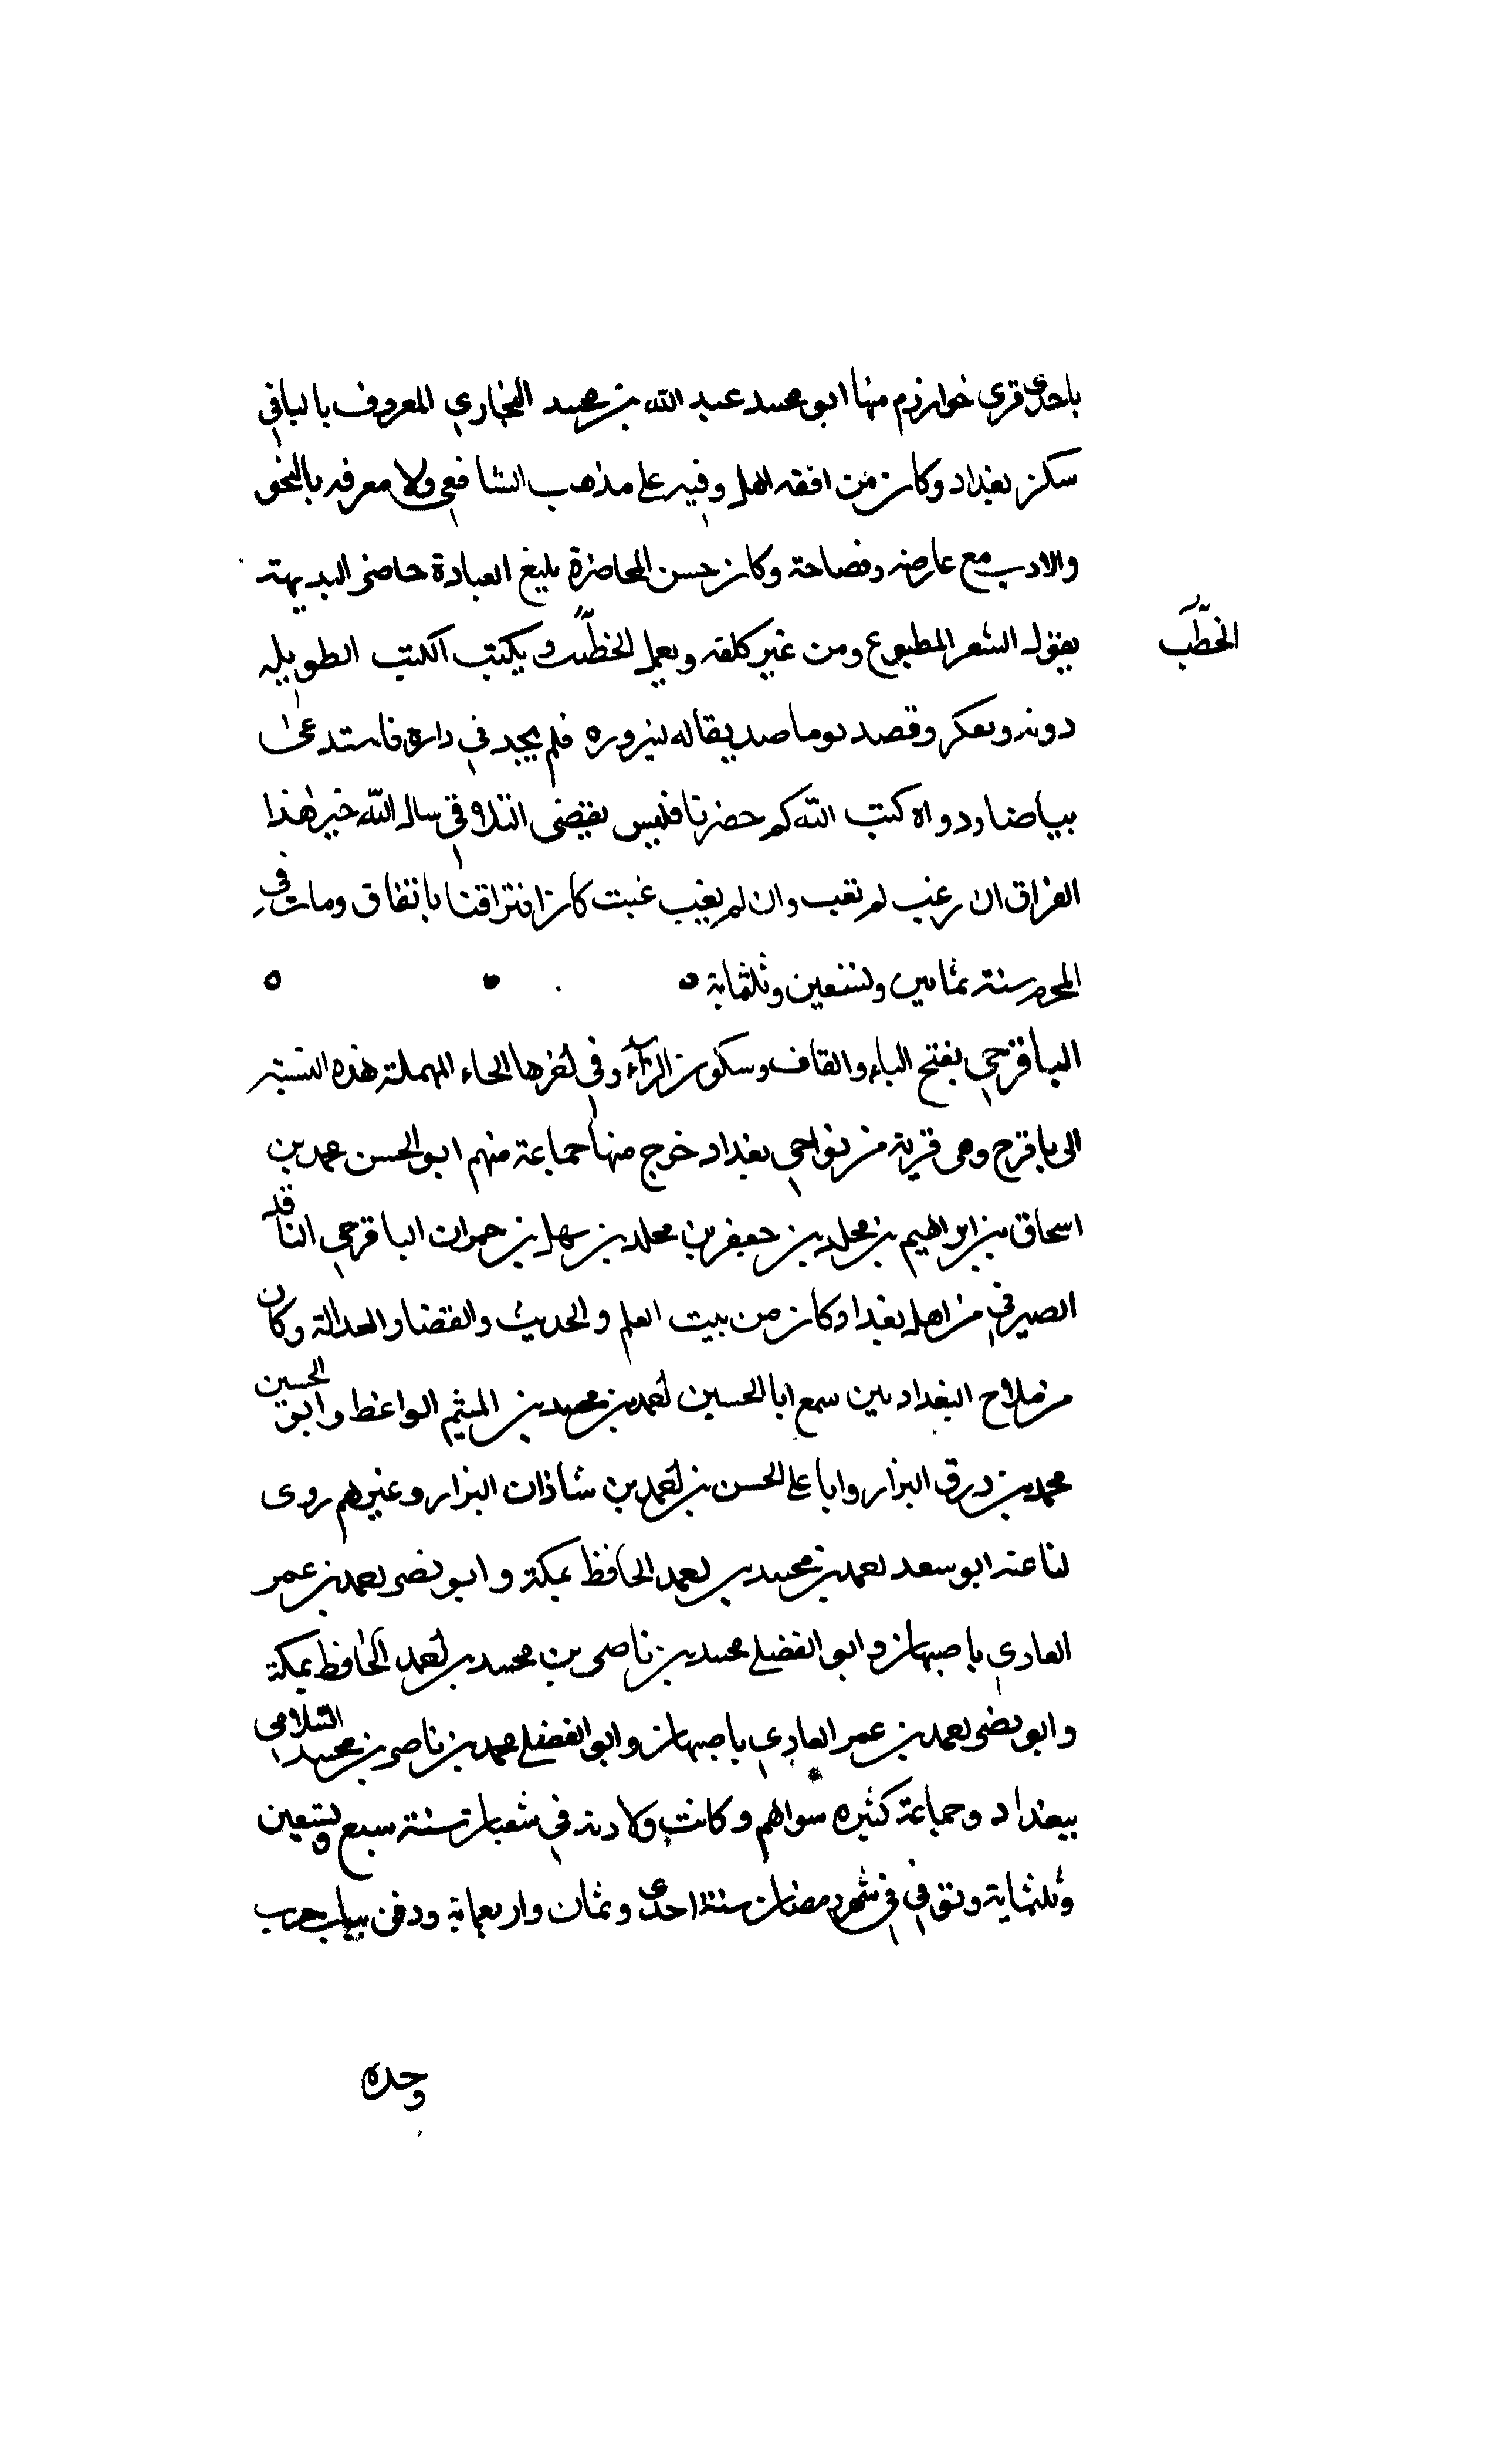 باحدى قرى خوارزم منها ابو محمد عبد الله بن محمد البخاري المعروف بالبافي
سكن بغداد وكان من افقه اهل وقته على مذهب الشافعي وله معرفه بالنحو
والادب مع عارضه وفصاحة وكان حسن المحاضرة بليغ العبادة حاضر البديهة
يقول الشعر المطبوع ومن غير كلفه ويعمل الخطب ويكتب الكتب الطويله
الخطب
دونه وتفكر وقصد يوما صديقا له ليزوره فلم يجد في داره فاستدعى
بياضا ودواه كتب الله كم حضرنا فليس يقضى التلاقي سال الله خير هذا
الفراق ان غب لم تغب وان لم يغب غبت كان افتراقنا باتفاق ومات في
المحرم سنة ثمان وتسعين وثلثماية
الباقرحي بفتح الباء والقاف وسكون الراء وفي اخرها الحاء المهملة هذه النسبة
الى باقرح وهى قرية من نواحي بغداد خرج منها جماعة منهم ابو الحسن محمد بن
اسحاق بن ابراهيم بن مخلد بن جعفر بن مخلد بن سهل بن حمران الباقرحي الناقد
الصيرفي من اهل بغداد كان من بيت العلم والحديث والقضا والعدالة وكان
من ملاح البغداديين سمع ابا الحسين احمد بن محمد بن الميثم الواعظ وابو الحسين
محمد بن درق البزار وابا على الحسن بن احمد بن شاذان البزار وغيرهم روى
لنا عنه ابو سعد احمد بن محمد بن احمد الحافظ بمكة وابو نصر احمد بن عمر
العادي باصبهان وابو الفضل محمد بن ناصر بن محمد بن احمد الحافظ بمكة
وابو نصر احمد بن عمر العادي باصبهان وابو الفضل محمد بن ناصر بن محمد السلامي
ببغداد وجماعة كثيره سواهم وكانت ولادته في شعبان سنة سبع وتسعين
وثلثماية وتوفي في شهر رمضان سنة احدى وثمان واربعماية ودفن بباب حرب
وجده